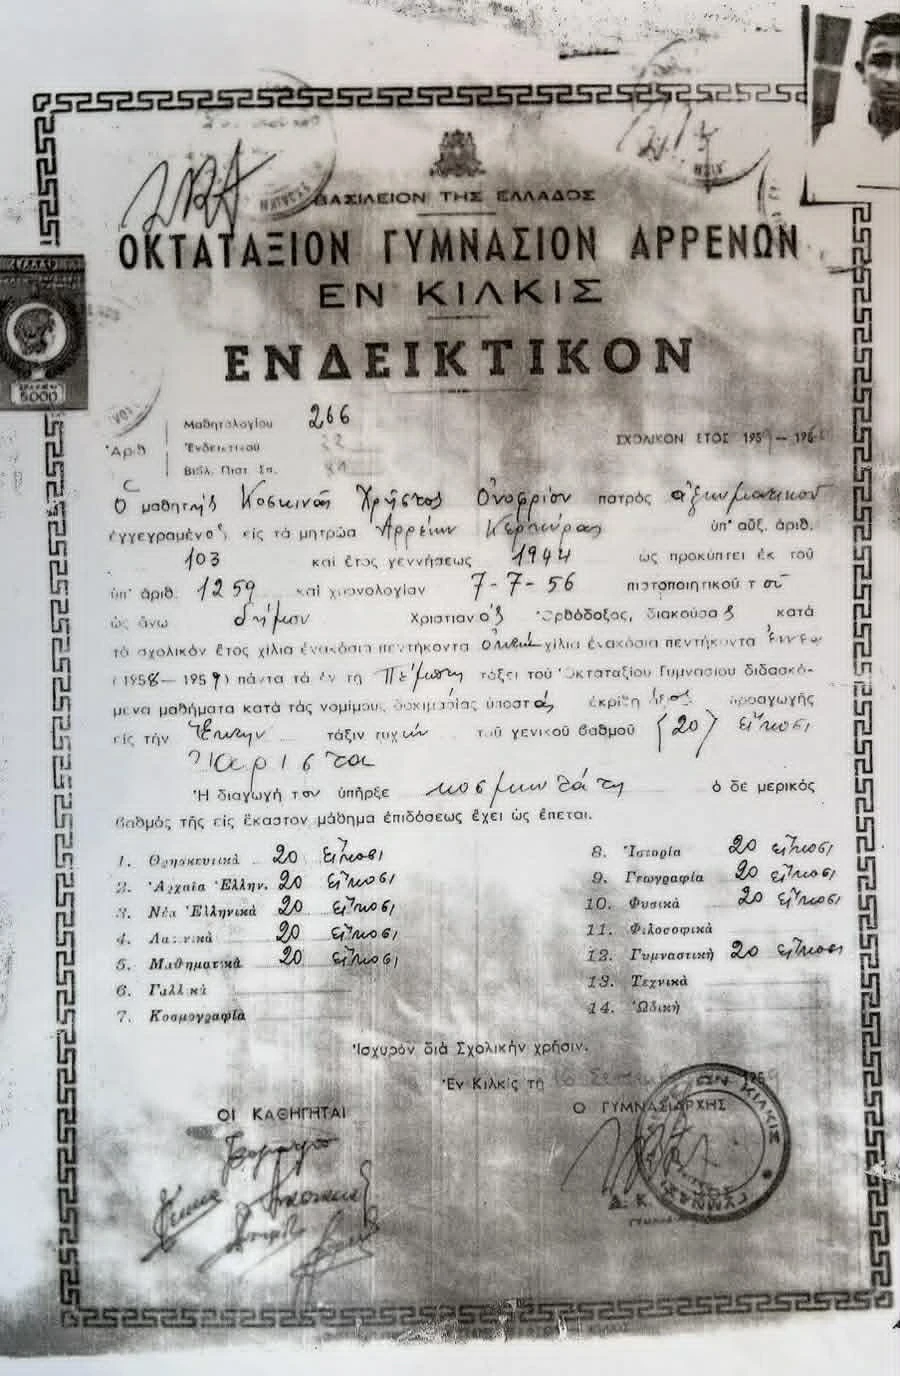 ΒΑΣΙΛΕΙΟΝ ΤΗΣ ΕΛΛΑΔΟΣ
ΟΚΤΑΤΑΞΙΟΝ ΓΥΜΝΑΣΙΟΝ ΑΡΡΕΝΩΝ
ΕΝ ΚΙΛΚΙΣ
ΕΝΔΕΙΚΤΙΚΟΝ
5000
Μαθητολογίου 266
Ἀριθ Ἐνδεικτικοῦ
Βιβλ. Πιστ. Σπ.
ΣΧΟΛΙΚΟΝ ΕΤΟΣ 195
Ὁ μαθητὴς Κοσκινᾶς Χρῆστος Ὀνουφρίου πατρὸς ἀξιωματικοῦ
ἐγγεγραμένος εἰς τὰ μητρῶα Ἀρρένων Κερκύρας ὑπ' αὔξ. ἀριθ.
103 καὶ ἔτος γεννήσεως 1944 ὡς προκύπτει ἐκ τοῦ
ὑπ' ἀριθ. 1259 καὶ χρονολογίαν 7-7-56 πιστοποιητικοῦ τοῦ
ὡς ἄνω δήμου Χριστιανὸς Ὀρθόδοξος, διακούσας κατὰ
τὸ σχολικὸν ἔτος χίλια ἐνακόσια πεντήκοντα ὀκτὼ χίλια ἐνακόσια πεντήκοντα ἐννέα
(1958—1959) πάντα τὰ ἐν τῇ Πέμπτῃ τάξει τοῦ Ὀκταταξίου Γυμνασίου διδασκό-
μενα μαθήματα κατὰ τὰς νομίμους δοκιμασίας ὑποστὰς ἐκρίθη ἄξιος προαγωγῆς
εἰς τὴν Ἕκτην τάξιν τυχὼν τοῦ γενικοῦ βαθμοῦ (20) εἴκοσι
Ἄριστα
Ἡ διαγωγή του ὑπῆρξε κοσμιωτάτη ὁ δὲ μερικὸς
βαθμὸς τῆς εἰς ἕκαστον μάθημα ἐπιδόσεως ἔχει ὡς ἕπεται.
1. Θρησκευτικὰ 20 εἴκοσι
2. Ἀρχαῖα Ἑλλην. 20 εἴκοσι
3. Νέα Ἑλληνικὰ 20 εἴκοσι
4. Λατινικὰ 20 εἴκοσι
5. Μαθηματικὰ 20 εἴκοσι
6. Γαλλικὰ
7. Κοσμογραφία
8. Ἱστορία 20 εἴκοσι
9. Γεωγραφία 20 εἴκοσι
10. Φυσικὰ 20 εἴκοσι
11. Φιλοσοφικὰ
12. Γυμναστικὴ 20 εἴκοσι
13. Τεχνικὰ
14. Ὠδικὴ
Ἰσχυρὸν διὰ Σχολικὴν χρῆσιν.
Ἐν Κιλκὶς τῇ
ΟΙ ΚΑΘΗΓΗΤΑΙ
Ο ΓΥΜΝΑΣΙΑΡΧΗΣ
Δ. Κ.